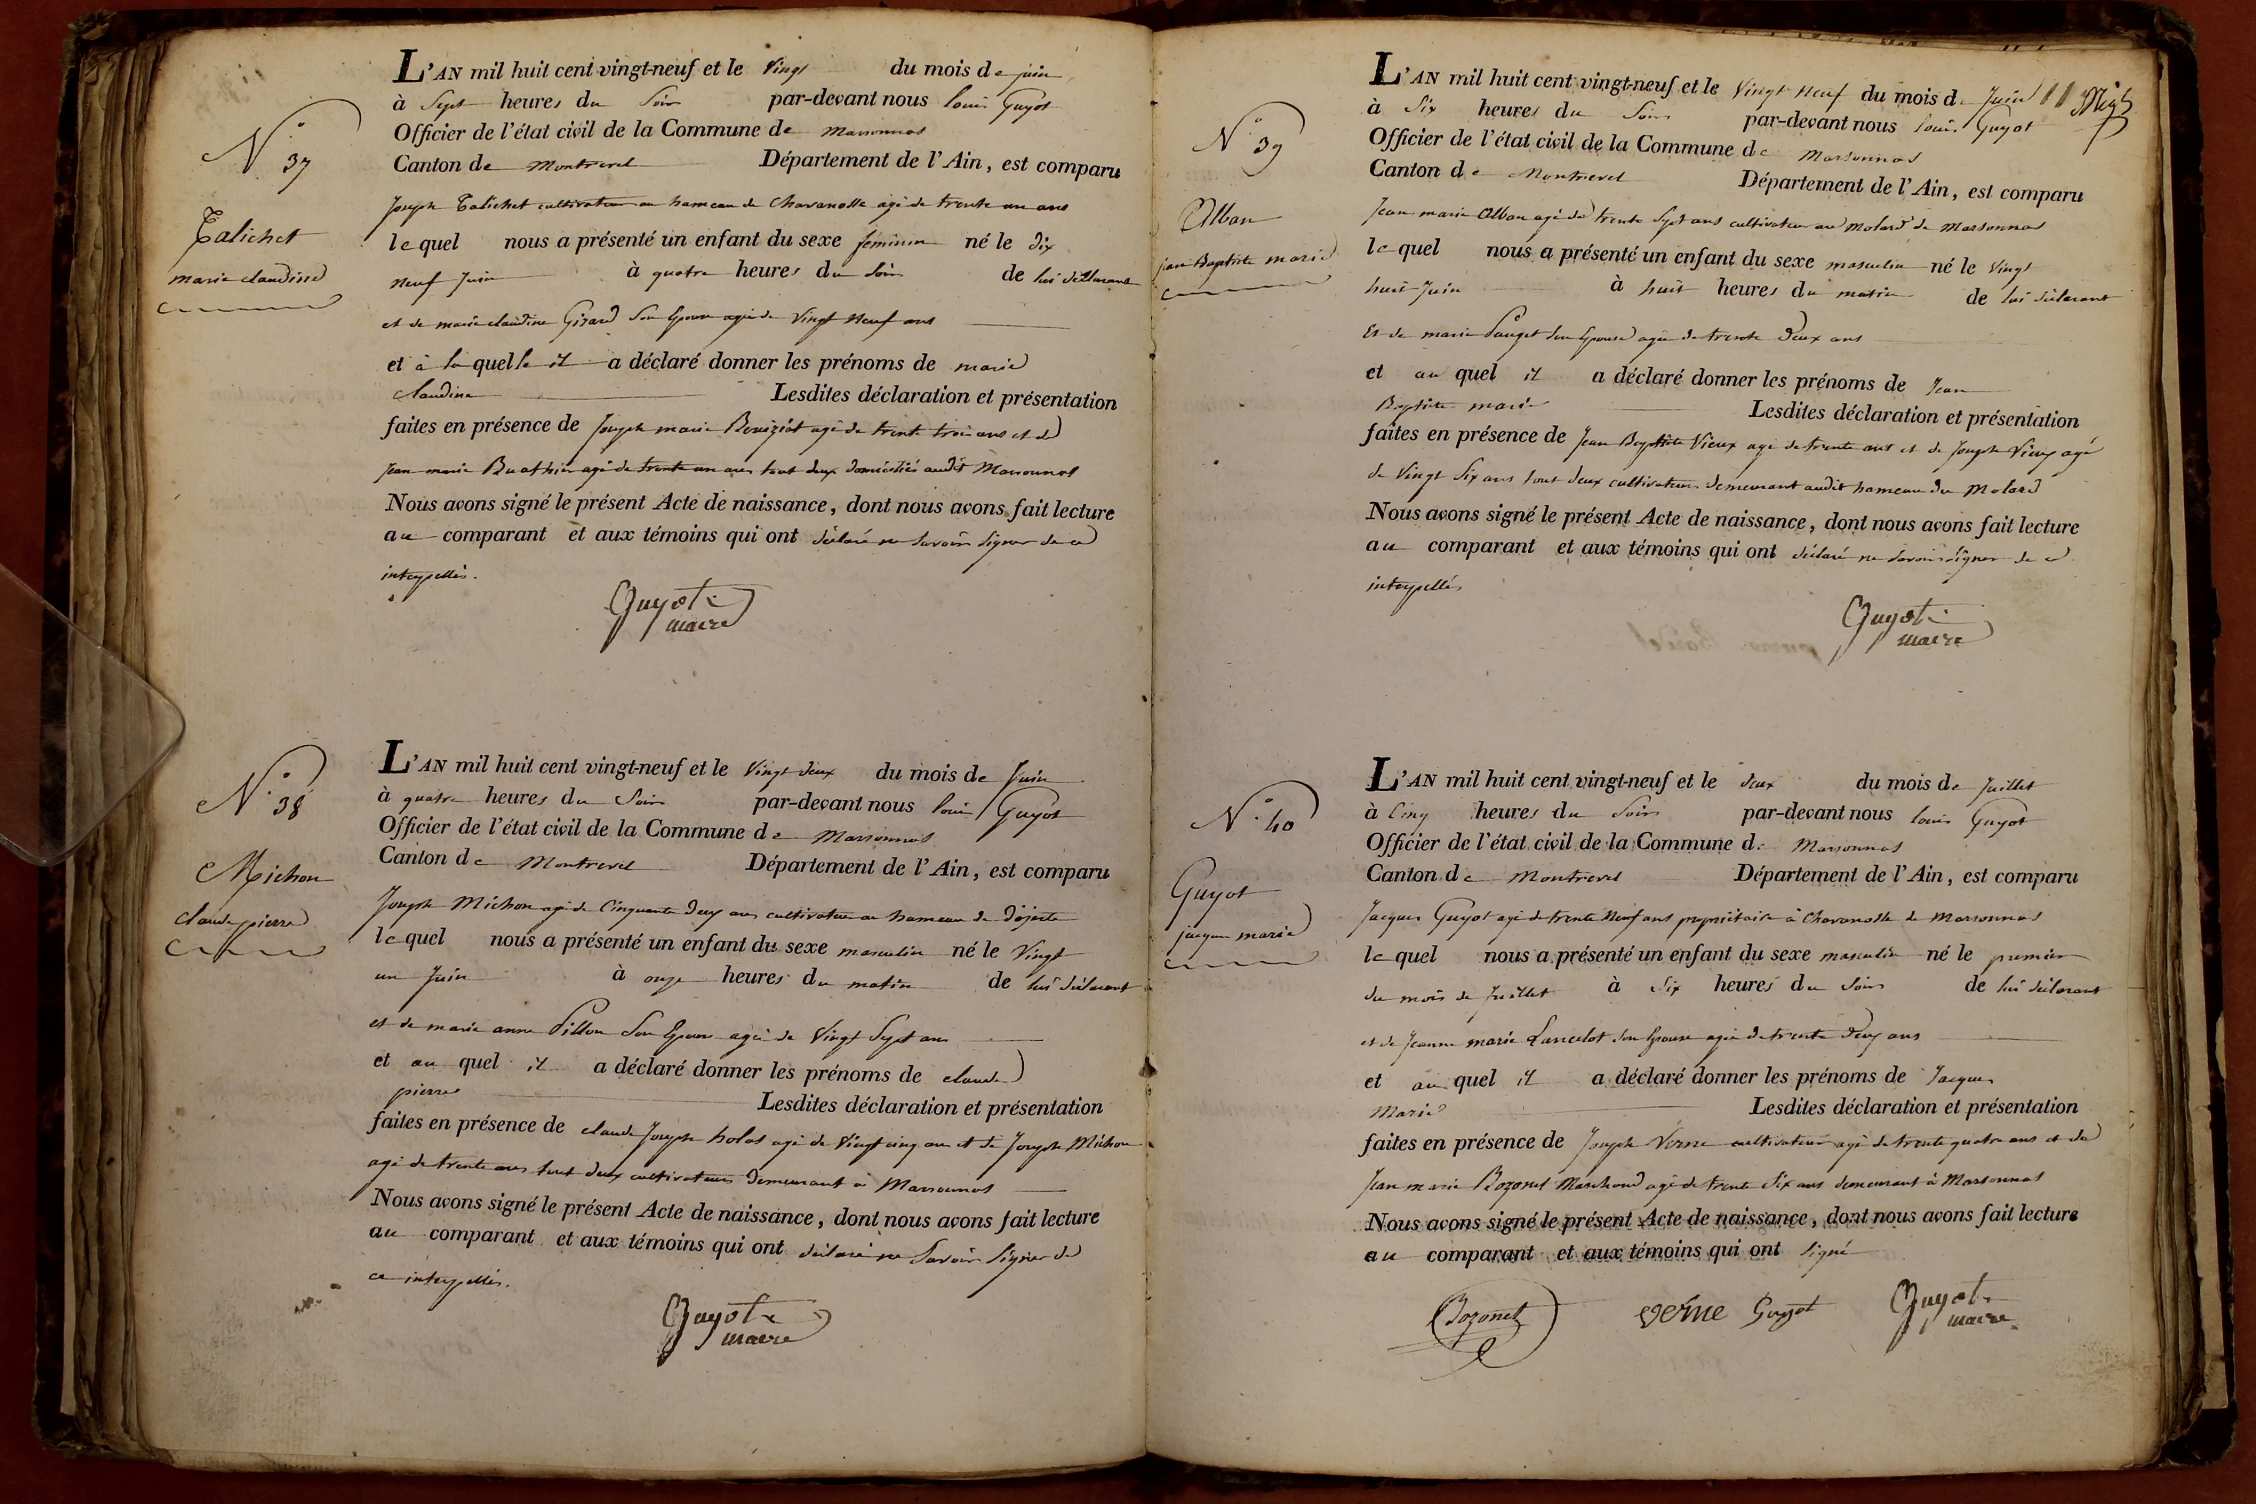 N.° 37
Talichet
marie claudine
L'AN mil huit cent vingt-neuf et le vingt du mois de juin
à Sept heures du Soir par-devant nous louis Guyot
Officier de l'état civil de la Commune de marsonnas
Canton de montrevel Département de l'Ain, est comparu
Joseph Talichet cultivateur au hameau de Chavanosse agé de trente un ans
lequel nous a présenté un enfant du sexe féminin né le dix
neuf juin à quatre heures du Soir de lui déclarant
et de marie claudine Girard Son Epouse agée de vingt neuf ans
et à laquelle il a déclaré donner les prénoms de marie
claudine Lesdites déclaration et présentation
faites en présence de Joseph marie agé de trente trois ans et de
Jean marie Buathier agé de trente un ans tout deux domiciliés audit Marsonnas
Nous avons signé le présent Acte de naissance, dont nous avons fait lecture
au comparant et aux témoins qui ont déclaré ne Savoir Signer de ce
interpellés.
Guyot
maire
N.° 38
Michon
claude pierre
L'AN mil huit cent vingt-neuf et le vingt deux du mois de Juin
à quatre heures du Soir par-devant nous louis Guyot
Officier de l'état civil de la Commune de Marsonnas
Canton de Montrevel Département de l'Ain, est comparu
Joseph Michon agé de Cinquante deux ans cultivateur au hameau de
lequel nous a présenté un enfant du sexe masculin né le vingt
un Juin à onze heures du matin de lui déclarant
et de marie anne Pillon Son Epouse agée de vingt Sept ans
et au quel il a déclaré donner les prénoms de claude
pierre Lesdites déclaration et présentation
faites en présence de claude Joseph agé de vingt cinq ans et de Joseph Michon
agé de trente ans tout deux cultivateurs demeurant à Marsonnas
Nous avons signé le présent Acte de naissance, dont nous avons fait lecture
au comparant et aux témoins qui ont déclaré ne Savoir Signer de
ce interpellés.
Guyot
maire
N.° 39
Alban
jean Baptiste marie
L'AN mil huit cent vingt-neuf et le vingt neuf du mois de Juin
à Six heures du Soir par-devant nous louis Guyot
Officier de l'état civil de la Commune de Marsonnas
Canton de Montrevel Département de l'Ain, est comparu
Jean marie Alban agé de trente Sept ans cultivateur au Molard de Marsonnas
lequel nous a présenté un enfant du sexe masculin né le vingt
huit Juin à huit heures du matin de lui déclarant
Et de marie Pauget Son Epouse agée de trente deux ans
et au quel il a déclaré donner les prénoms de Jean
Baptiste marie Lesdites déclaration et présentation
faites en présence de Jean Baptiste Vieux agé de trente ans et de Joseph Vieux agé
de vingt Six ans tout deux cultivateurs demeurant audit hameau du Molard
Nous avons signé le présent Acte de naissance, dont nous avons fait lecture
au comparant et aux témoins qui ont déclaré ne Savoir Signer de ce
interpellés
Guyot
maire
N.° 40
Guyot
jacques marie
L'AN mil huit cent vingt-neuf et le deux du mois de Juillet
à Cinq heures du Soir par-devant nous louis Guyot
Officier de l'état civil de la Commune de Marsonnas
Canton de Montrevel Département de l'Ain, est comparu
Jacques Guyot agé de trente Neuf ans propriétaire à Chavanosse de Marsonnas
lequel nous a présenté un enfant du sexe masculin né le premier
du mois de Juillet à Six heures du Soir de lui déclarant
et de Jeanne marie Lancelot Son Epouse agée de trente deux ans
et au quel il a déclaré donner les prénoms de Jacques
Marie Lesdites déclaration et présentation
faites en présence de Joseph Verne cultivateur agé de trente quatre ans et de
Jean marie Bozonet Marchand agé de trente Six ans demeurant à Marsonnas
Nous avons signé le présent Acte de naissance, dont nous avons fait lecture
au comparant et aux témoins qui ont Signé
Bozonet verne Guyot Guyot
maire